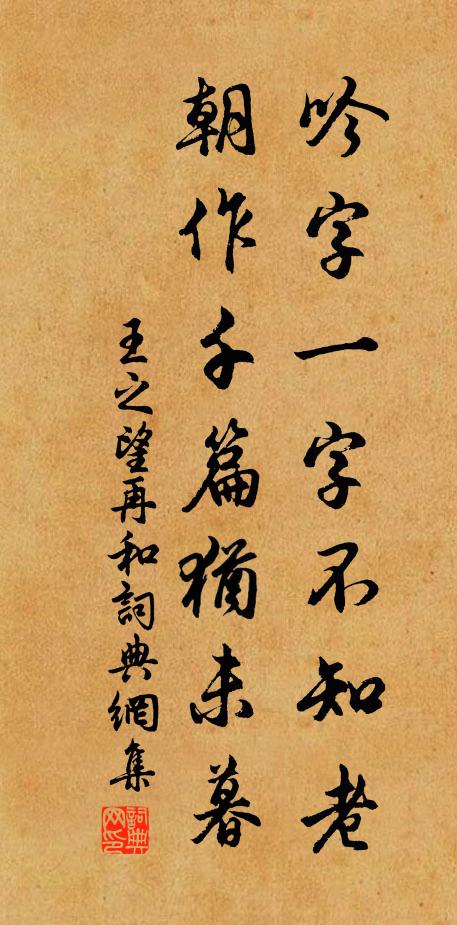 吟字一字不知老
朝作千篇猶未暮
王之望再和詞典網集
詞典网印